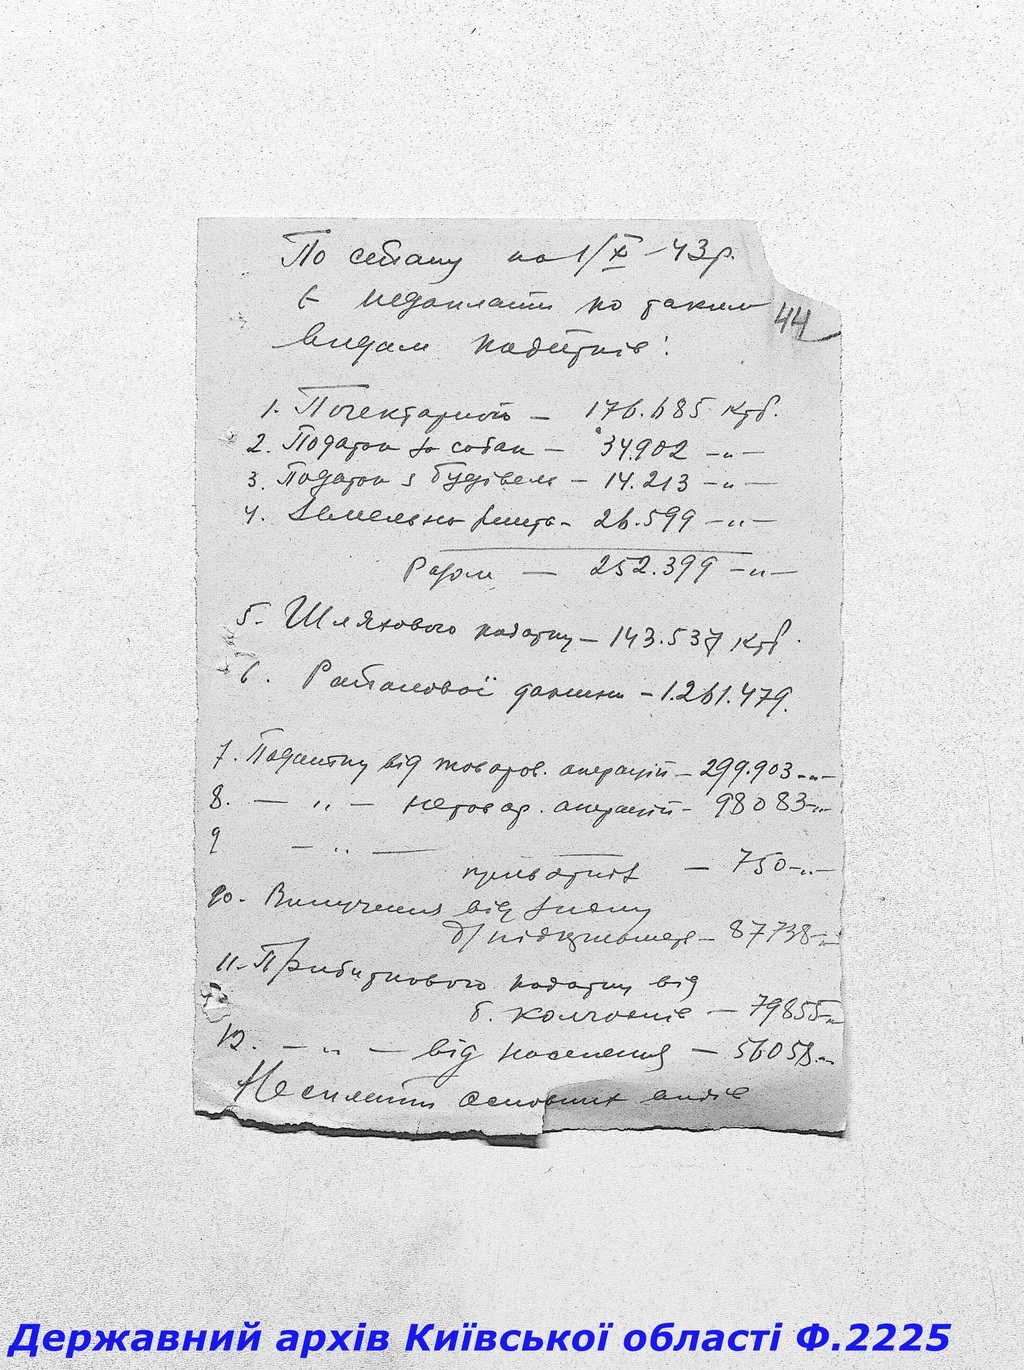 По стану на 1/X-43р.
є недоплати по таким
44
видам податків:
1. Погектарной — 176.685 Крб.
2. Податок за собак — 34.902 —"—
3. Податок з будівель — 14.213 —"—
4. Земельна рента - 26.599 —"—
Разом — 252.399 —"—
5. Шляхового податку — 143.537 Крб.
6. данини - 1.261.479.
7. Податку від товаров. операцій — 299.903 -"-
8. — " — нетовар. операцій - 98083-"-
9 — " — — 750-"-
приватних
10. Вилучення від
підприємств — 87738-"-
11. Прибуткового податку від
б. колгоспів — 79855-"-
12. — " — від населення — 56058-"-
Несплати основних видів
Державний архів Київської області Ф.2225